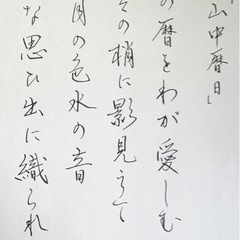 「山中暦日」
の暦をわが愛しむ
その梢に影見えて
月の色水の音
な思ひ出に織られ